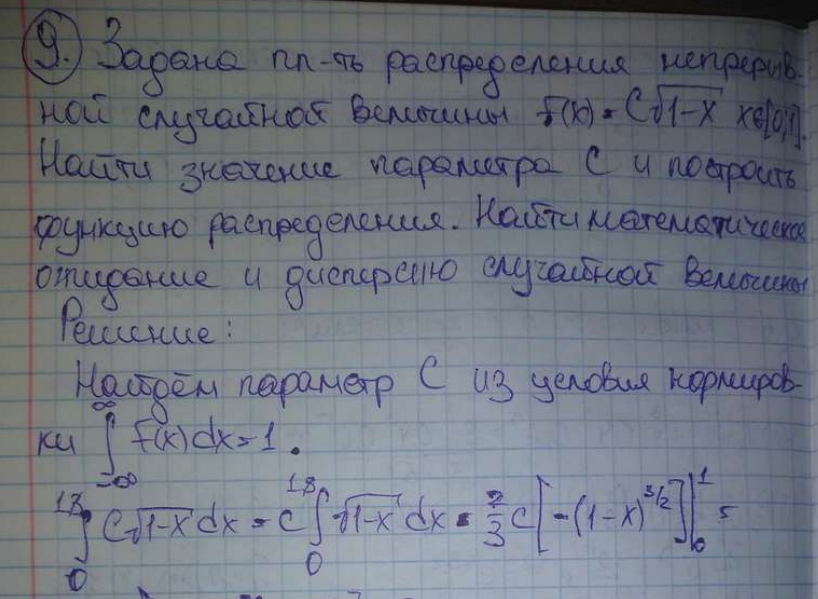 9. Задана пл-ть распределения непрерыв-
ной случайной величины f(x) = C√(1-x) x∈[0,1].
Найти значение параметра C и построить
функцию распределения. Найти математическое
ожидание и дисперсию случайной величины
Решение:
Найдём параметр C из условия нормиров-
ки ∫_{-∞}^{∞} f(x)dx = 1.
∫_0^1 C√(1-x) dx = C ∫_0^1 √(1-x) dx = 2/3 C [-(1-x)^{3/2}]|_0^1 =